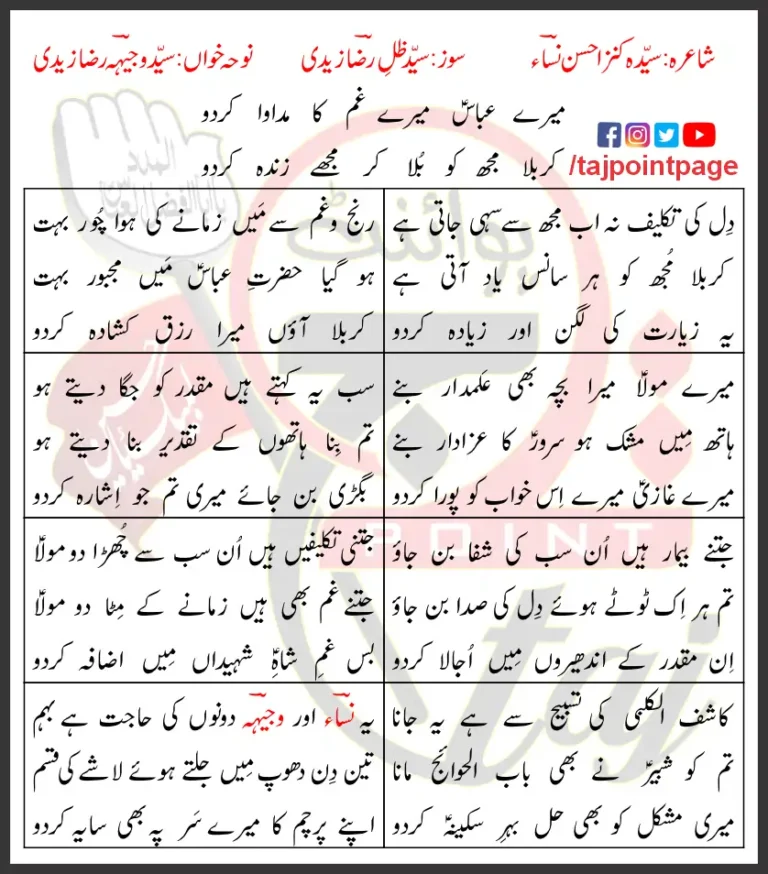 شاعرہ: سیّدہ کنزا حسن نساءؔ سوز: سیّد ظلِ رضا زیدی نوحہ خواں: سیّد وجیہہؔ رضا زیدی
میرے عباسؑ میرے غم کا مداوا کردو
کربلا مجھ کو بُلا کر مجھے زندہ کردو
/tajpointpage
دِل کی تکلیف نہ اب مجھ سے سہی جاتی ہے
کربلا مُجھ کو ہر سانس یاد آتی ہے
یہ زیارت کی لگن اور زیادہ کردو
رنج وغم سے مَیں زمانے کی ہوا چُور بہت
ہو گیا حضرتِ عباسؑ مَیں مجبور بہت
کربلا آؤں میرا رزق کشادہ کردو
میرے مولاؑ میرا بچہ بھی علمدار بنے
ہاتھ مِیں مشک ہو سرورؑ کا عزادار بنے
میرے غازیؑ میرے اِس خواب کو پورا کردو
سب یہ کہتے ہیں مقدر کو جگا دیتے ہو
تم بِنا ہاتھوں کے تقدیر بنا دیتے ہو
بگڑی بن جائے میری تم جو اِشارہ کردو
جتنے بیمار ہیں اُن سب کی شفا بن جاؤ
تم ہر اِک ٹوٹے ہوئے دِل کی صدا بن جاؤ
اِن مقدر کے اندھیروں مِیں اُجالا کردو
جتنی تکلیفیں ہیں اُن سب سے چُھڑا دو مولاؑ
جتنے غم بھی ہیں زمانے کے مِٹا دو مولاؑ
بس غمِ شاہِؑ شہیداں مِیں اضافہ کردو
کاشف الکلبی کی تسبیح سے ہے یہ جانا
تم کو شبیرؑ نے بھی باب الحوائج مانا
میری مشکل کو بھی حل بہرِ سکینہؑ کردو
یہ نساءؔ اور وجیہہؔ دونوں کی حاجت ہے بہم
تین دِن دھوپ مِیں جلتے ہوئے لاشے کی قسم
اپنے پرچم کا میرے سَر پہ بھی سایہ کردو
پوائنٹ
POINT
taj